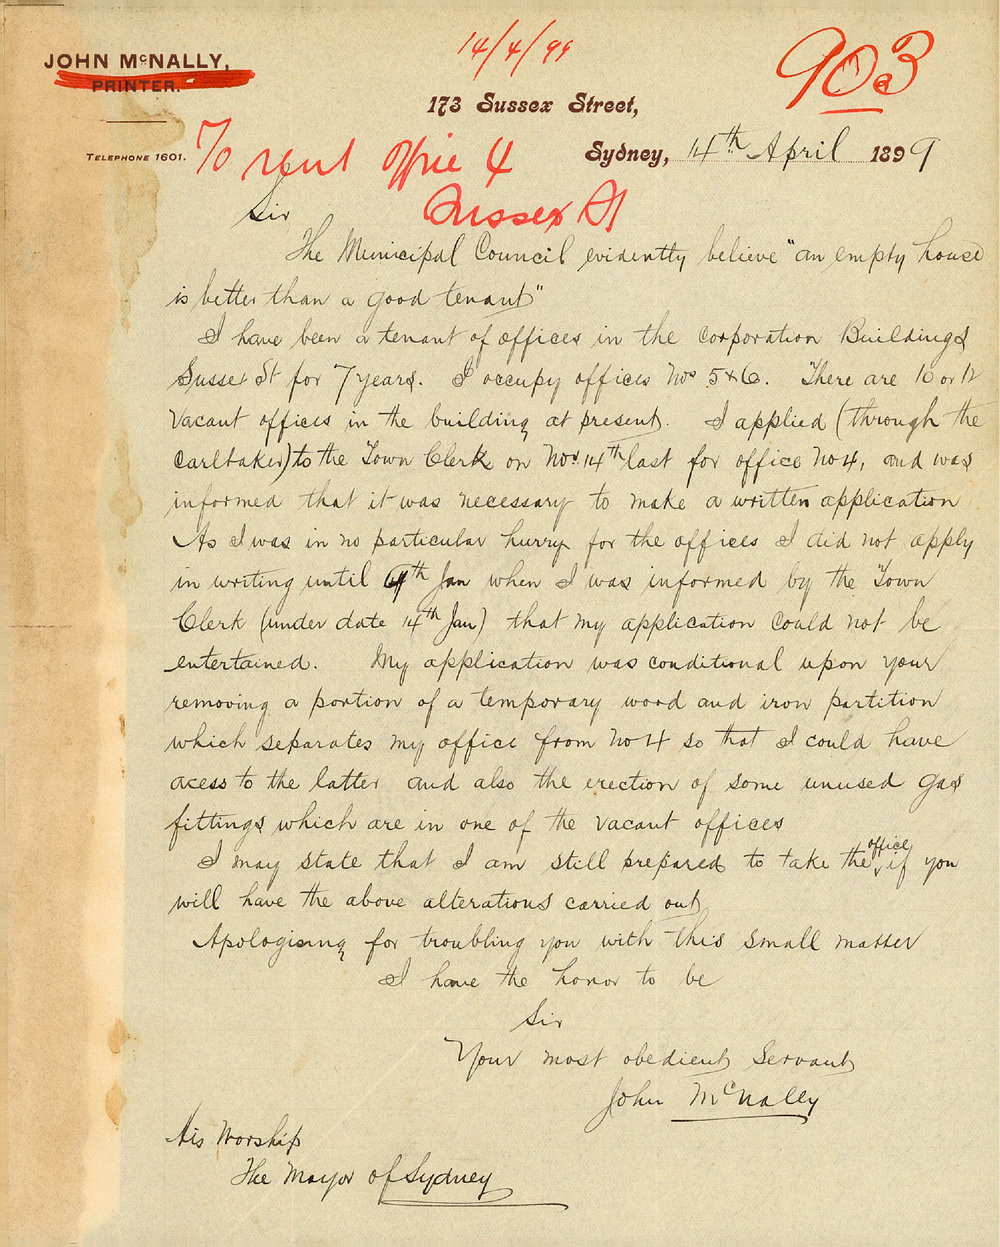 14/4/99
903
JOHN McNALLY,
PRINTER.
173 Sussex Street,
TELEPHONE 1601.
To rent Office 4
Sussex St
Sydney, 14th April 1899
Sir
The Municipal Council evidently believe "an empty house
is better than a good tenant"
I have been a tenant of offices in the Corporation Buildings
Sussex St for 7 years. I occupy offices Nos 5 & 6. There are 10 or 12
vacant offices in the building at present. I applied (through the
caretaker) to the Town Clerk on Nov 14th last for office No 4, and was
informed that it was necessary to make a written application
As I was in no particular hurry for the offices I did not apply
in writing until th Jan when I was informed by the Town
Clerk (under date 14th Jan) that my application could not be
entertained. My application was conditional upon your
removing a portion of a temporary wood and iron partition
which separates my office from No 4 so that I could have
acess to the latter and also the erection of some unused gas
fittings which are in one of the vacant offices
I may state that I am still prepared to take the office if you
will have the above alterations carried out
Apologising for troubling you with this small matter
I have the honor to be
Sir
Your most obedient Servant
John McNally
His Worship
The Mayor of Sydney